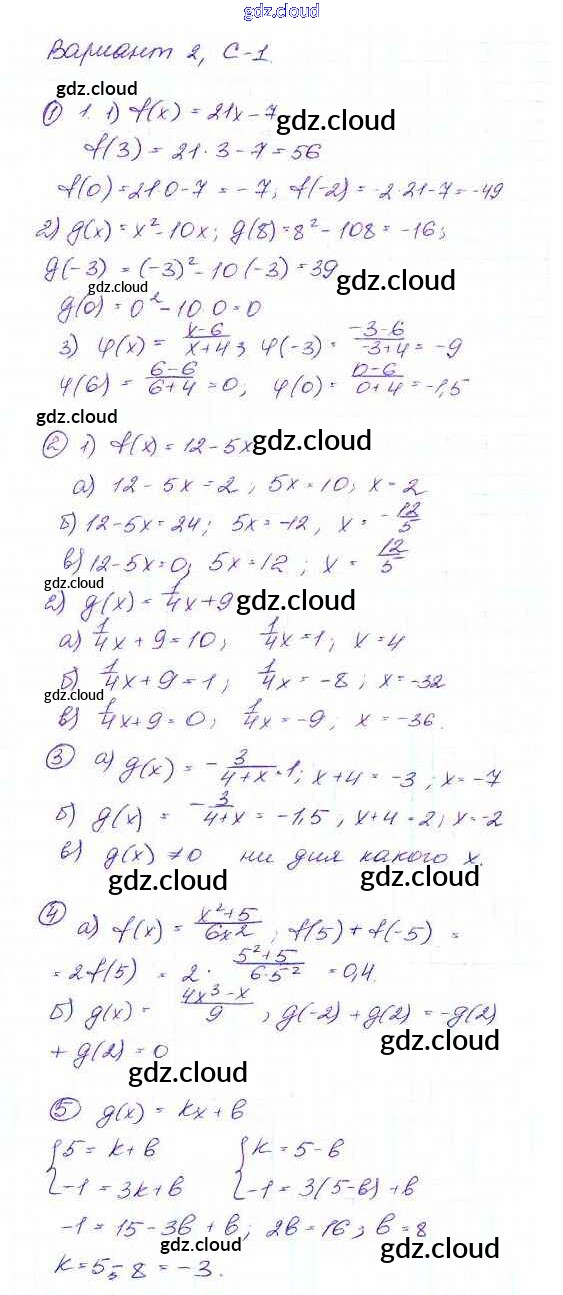 gdz.cloud
Вариант 2, С-1.
gdz.cloud
① 1. 1) f(x) = 21x - 7 gdz.cloud
f(3) = 21·3 - 7 = 56
f(0) = 21·0 - 7 = -7; f(-2) = -2·21 - 7 = -49
2) g(x) = x² - 10x; g(8) = 8² - 108 = -16;
g(-3) = (-3)² - 10(-3) = 39
gdz.cloud gdz.cloud
g(0) = 0² - 10·0 = 0
3) φ(x) = (x-6)/(x+4); φ(-3) = (-3-6)/(-3+4) = -9
φ(6) = (6-6)/(6+4) = 0, φ(0) = (0-6)/(0+4) = -1,5
gdz.cloud
② 1) f(x) = 12 - 5x gdz.cloud
а) 12 - 5x = 2; 5x = 10; x = 2
б) 12 - 5x = 24; 5x = -12, x = -12/5
в) 12 - 5x = 0; 5x = 12; x = 12/5
gdz.cloud
2) g(x) = 1/4x + 9 gdz.cloud
а) 1/4x + 9 = 10; 1/4x = 1; x = 4
б) 1/4x + 9 = 1; 1/4x = -8; x = -32
gdz.cloud
в) 1/4x + 9 = 0; 1/4x = -9; x = -36.
③ а) g(x) = -3/(4+x) = 1; x + 4 = -3; x = -7
б) g(x) = -3/(4+x) = -1,5, x + 4 = 2; x = -2
в) g(x) ≠ 0 ни для какого x.
gdz.cloud gdz.cloud
④ а) f(x) = (x²+5)/(6x²), f(5) + f(-5) =
= 2f(5) = 2·(5²+5)/(6·5²) = 0,4.
б) g(x) = (4x³-x)/9, g(-2) + g(2) = -g(2)
+ g(2) = 0 gdz.cloud
gdz.cloud
⑤ g(x) = kx + b
{5 = k + b {k = 5 - b
{-1 = 3k + b {-1 = 3(5-b) + b
-1 = 15 - 3b + b; 2b = 16; b = 8
gdz.cloud gdz.cloud
k = 5 - 8 = -3.